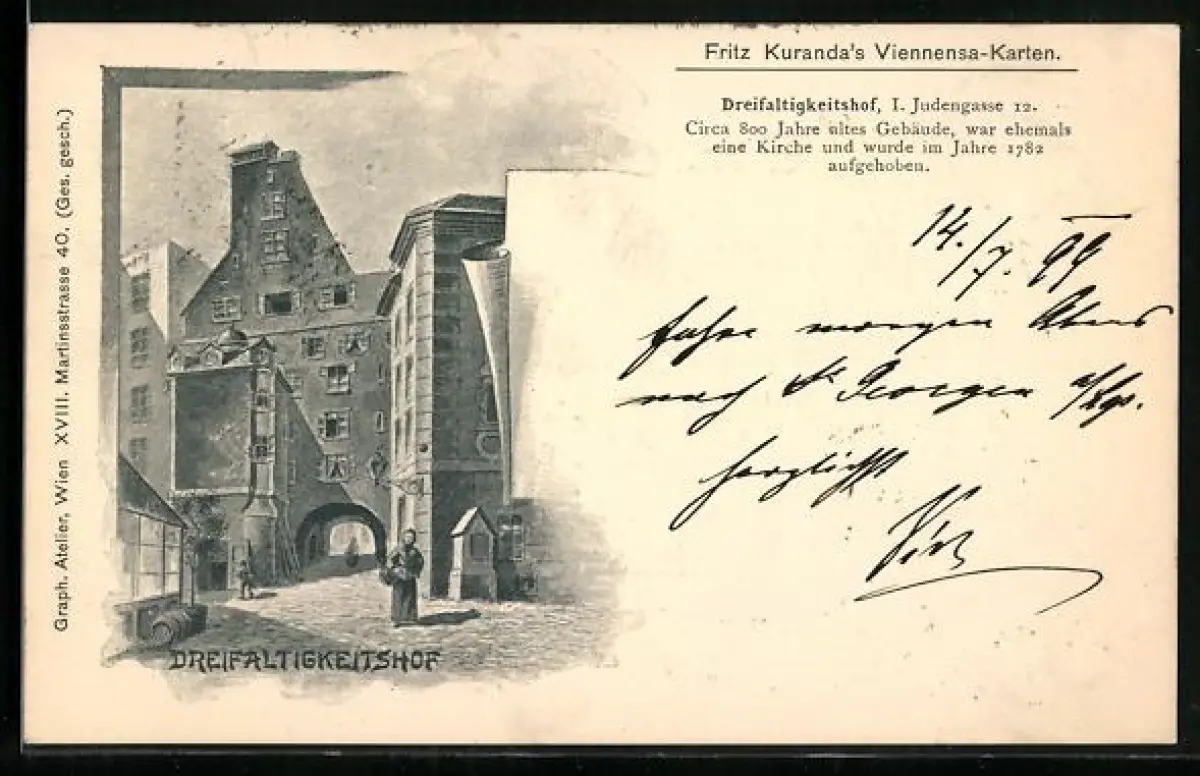 Fritz Kuranda's Viennensa-Karten.
Dreifaltigkeitshof, I. Judengasse 12.
Circa 800 Jahre altes Gebäude, war ehemals
eine Kirche und wurde im Jahre 1782
aufgehoben.
14./7. 99
fahre morgen Abend
nach St Georgen a/
herzlichst
Graph. Atelier, Wien XVIII. Martinsstrasse 40. (Ges. gesch.)
DREIFALTIGKEITSHOF